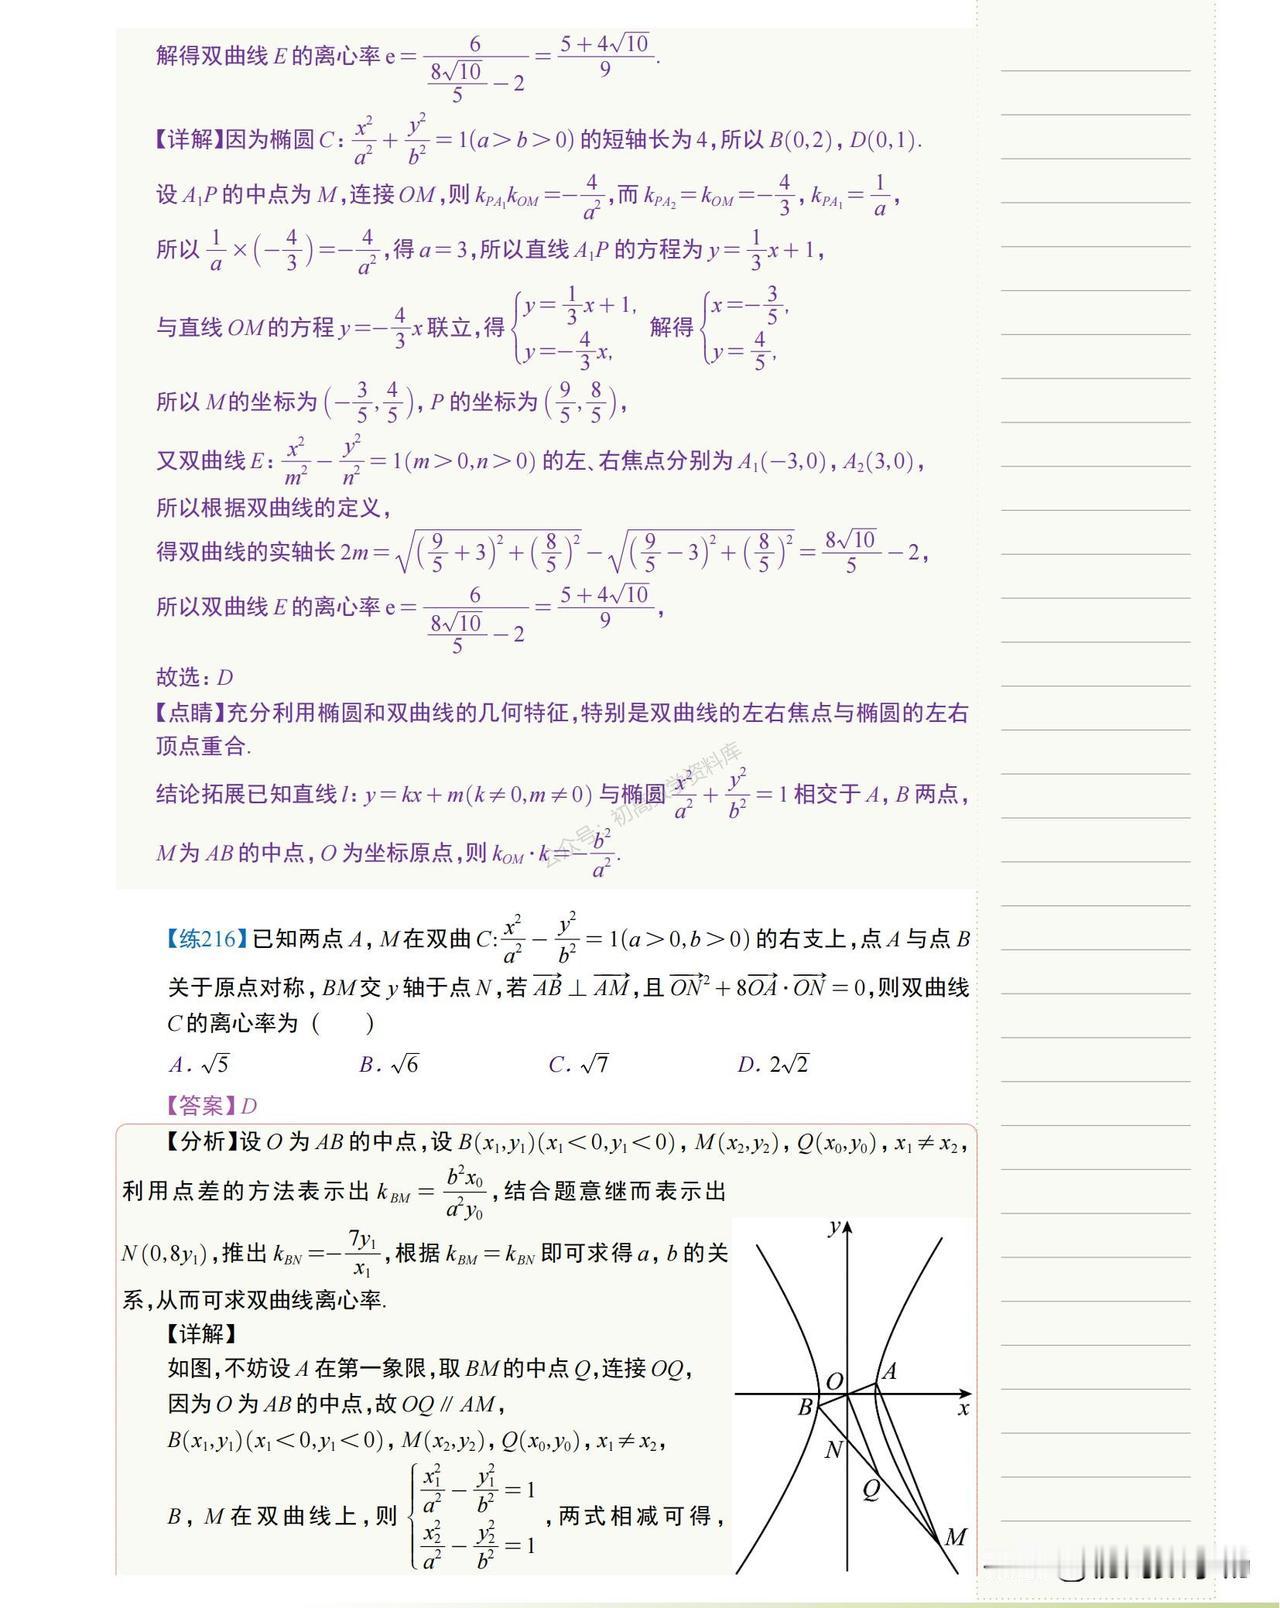 解得双曲线 E 的离心率 e = 6/(8√10/5 − 2) = (5 + 4√10)/9.
【详解】因为椭圆 C: x²/a² + y²/b² = 1(a > b > 0) 的短轴长为 4,所以 B(0,2), D(0,1).
设 A₁P 的中点为 M,连接 OM,则 k_{PA₁}k_{OM} = −4/a²,而 k_{PA₂} = k_{OM} = −4/3, k_{PA₁} = 1/a,
所以 1/a × (−4/3) = −4/a²,得 a = 3,所以直线 A₁P 的方程为 y = 1/3x + 1,
与直线 OM 的方程 y = −4/3x 联立,得 {y = 1/3x + 1, y = −4/3x, 解得 {x = −3/5, y = 4/5,
所以 M 的坐标为 (−3/5, 4/5), P 的坐标为 (9/5, 8/5),
又双曲线 E: x²/m² − y²/n² = 1(m > 0,n > 0) 的左、右焦点分别为 A₁(−3,0), A₂(3,0),
所以根据双曲线的定义,
得双曲线的实轴长 2m = √((9/5 + 3)² + (8/5)²) − √((9/5 − 3)² + (8/5)²) = 8√10/5 − 2,
所以双曲线 E 的离心率 e = 6/(8√10/5 − 2) = (5 + 4√10)/9,
故选: D
【点睛】充分利用椭圆和双曲线的几何特征,特别是双曲线的左右焦点与椭圆的左右
顶点重合.
结论拓展已知直线 l: y = kx + m(k ≠ 0,m ≠ 0) 与椭圆 x²/a² + y²/b² = 1 相交于 A, B 两点,
M 为 AB 的中点, O 为坐标原点,则 k_{OM}·k = −b²/a².
【练216】已知两点 A, M 在双曲 C: x²/a² − y²/b² = 1(a > 0,b > 0) 的右支上,点 A 与点 B
关于原点对称, BM 交 y 轴于点 N,若 \overrightarrow{AB} ⊥ \overrightarrow{AM},且 \overrightarrow{ON}² + 8\overrightarrow{OA}·\overrightarrow{ON} = 0,则双曲线
C 的离心率为 (    )
A. √5 B. √6 C. √7 D. 2√2
【答案】D
【分析】设 O 为 AB 的中点,设 B(x₁,y₁)(x₁ < 0,y₁ < 0), M(x₂,y₂), Q(x₀,y₀), x₁ ≠ x₂,
利用点差的方法表示出 k_{BM} = b²x₀/a²y₀,结合题意继而表示出
N(0,8y₁),推出 k_{BN} = −7y₁/x₁,根据 k_{BM} = k_{BN} 即可求得 a, b 的关
系,从而可求双曲线离心率.
【详解】
如图,不妨设 A 在第一象限,取 BM 的中点 Q,连接 OQ,
因为 O 为 AB 的中点,故 OQ ∥ AM,
B(x₁,y₁)(x₁ < 0,y₁ < 0), M(x₂,y₂), Q(x₀,y₀), x₁ ≠ x₂,
B, M 在双曲线上,则 {x₁²/a² − y₁²/b² = 1, x₂²/a² − y₂²/b² = 1 ,两式相减可得,
y
O
A
B
x
N
Q
M